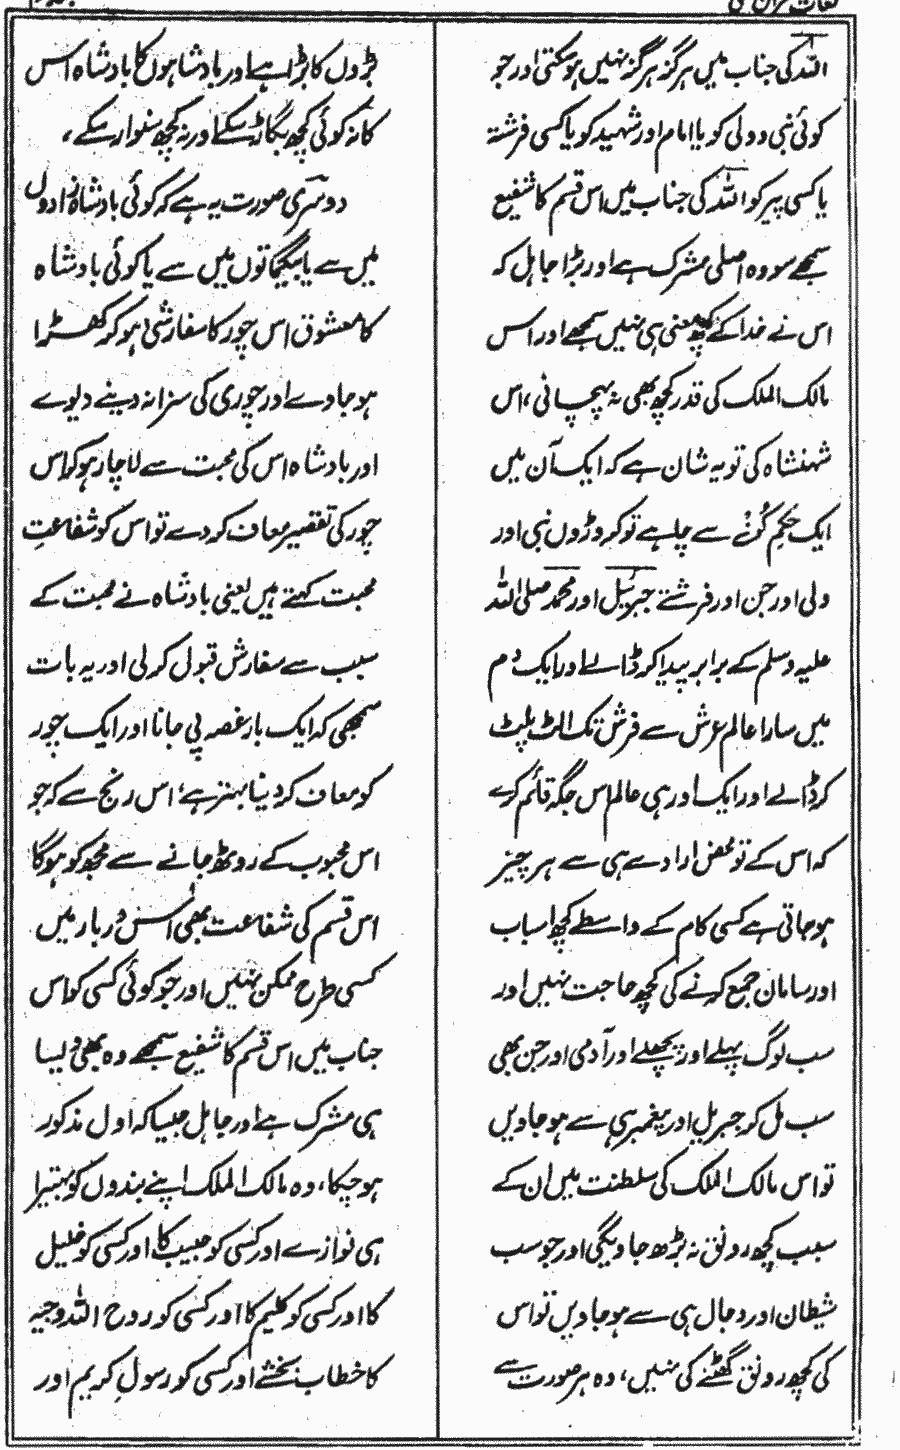 اللہ کی جناب میں ہرگز ہرگز نہیں ہو سکتی اور جو
کوئی نبی و ولی کو یا امام اور شہید کو یا کسی فرشتہ
یا کسی پیر کو اللہ کی جناب میں اس قسم کا شفیع
سمجھے سو وہ اصلی مشرک ہے اور بڑا جاہل کہ
اس نے خدا کے کچھ معنی ہی نہیں سمجھے اور اس
مالک الملک کی قدر کچھ بھی نہ پہچانی، اس
شہنشاہ کی تو یہ شان ہے کہ ایک آن میں
ایک حکم کُنْ سے چاہے تو کروڑوں نبی اور
ولی اور جن اور فرشتے جبرئیل اور محمد صلی اللہ
علیہ وسلم کے برابر پیدا کر ڈالے اور ایک دم
میں سارا عالم عرش سے فرش تک الٹ پلٹ
کر ڈالے اور ایک اور ہی عالم اس جگہ قائم کرے
کہ اس کے تو محض ارادے ہی سے ہر چیز
ہو جاتی ہے کسی کام کے واسطے کچھ اسباب
اور سامان جمع کرنے کی کچھ حاجت نہیں اور
سب لوگ پہلے اور پچھلے اور آدمی اور جن بھی
سب مل کر جبریل اور پیغمبر ہی سے ہو جاویں
تو اس مالک الملک کی سلطنت میں ان کے
سبب کچھ رونق نہ بڑھ جاویگی اور جو سب
شیطان اور دجال ہی سے ہو جاویں تو اس
کی کچھ رونق گھٹنے کی نہیں، وہ ہر صورت سے
بڑوں کا بڑا ہے اور بادشاہوں کا بادشاہ اس
کا نہ کوئی کچھ بگاڑ سکے اور نہ کچھ سنوار سکے،
دوسری صورت یہ ہے کہ کوئی بادشاہزادوں
میں سے یا بیگماتوں میں سے یا کوئی بادشاہ
کا معشوق اس چور کا سفارشی ہو کر کھڑا
ہو جاوے اور چوری کی سزا نہ دینے دیوے
اور بادشاہ اس کی محبت سے لاچار ہو کر اس
چور کی تقصیر معاف کر دے تو اس کو شفاعتِ
محبت کہتے ہیں یعنی بادشاہ نے محبت کے
سبب سے سفارش قبول کر لی اور یہ بات
سمجھی کہ ایک بار غصہ پی جانا اور ایک چور
کو معاف کر دینا بہتر ہے، اس رنج سے کہ جو
اس محبوب کے روٹھ جانے سے مجھ کو ہوگا
اس قسم کی شفاعت بھی اس دربار میں
کسی طرح ممکن نہیں اور جو کوئی کسی کو اس
جناب میں اس قسم کا شفیع سمجھے وہ بھی ویسا
ہی مشرک ہے اور جاہل جیسا کہ اول مذکور
ہو چکا، وہ مالک الملک اپنے بندوں کو بہتیرا
ہی نوازے اور کسی کو حبیب کا اور کسی کو خلیل
کا اور کسی کو کلیم کا اور کسی کو روح اللہ وجیہ
کا خطاب بخشے اور کسی کو رسولِ کریم اور